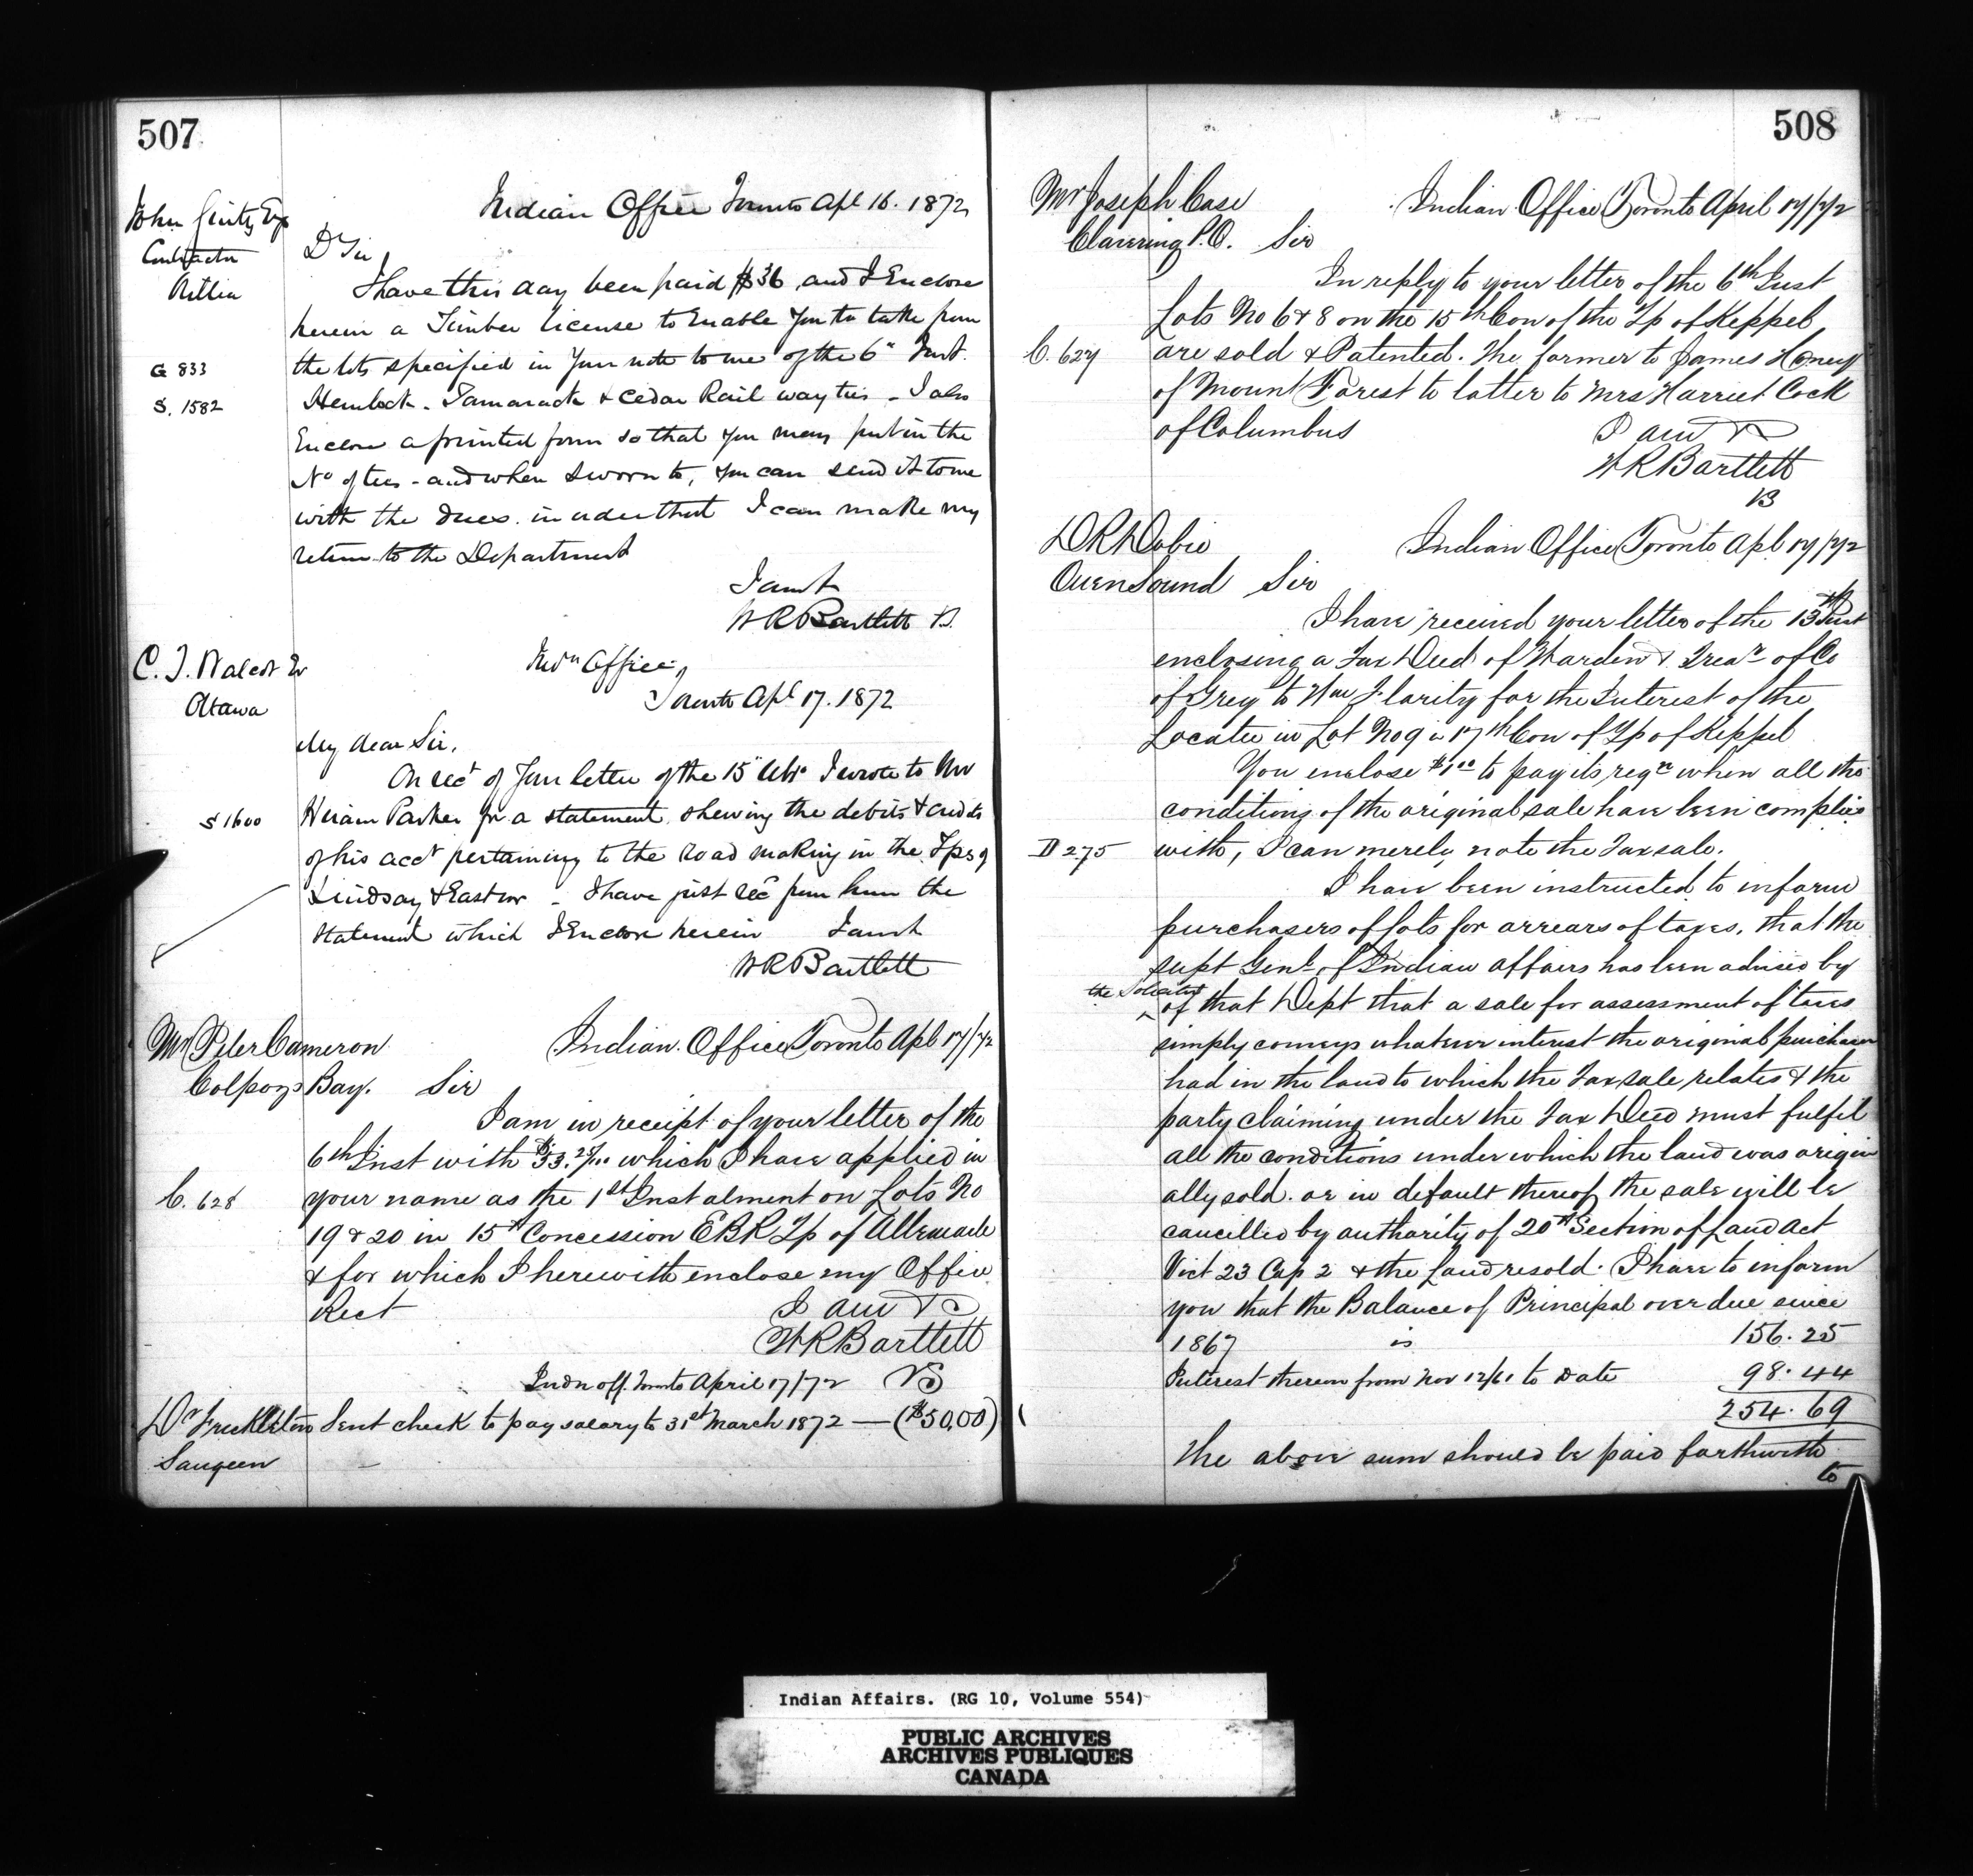 507
Indian Office Toronto Apl 16. 1872
John Ginty Esq
Contractor
Orillia
Dr Sir,
I have this day been paid $36 and I Enclose
herein a Timber license to Enable you to take from
G 833
the lots specified in your note to me of the 6th Inst.
S. 1582
Hemlock - Tamarack & Cedar Rail way ties - I also
Enclose a printed form so that you may put in the
No of ties - and when sworn to, you can send it to me
with the dues in order that I can make my
return to the Department
I am &
W R Bartlett
C. T. Walcot Er
Ottawa
Indn Office,
Toronto Apl 17. 1872
My dear Sir,
On rect of your letter of the 15th Ulto I wrote to Mr
S 1600
Hiram Parker for a statement shewing the debits & credits
of his acct pertaining to the road making in the Tps of
Lindsay & Eastnor - I have just recd from him the
statement which I Enclose herein I am &
W R Bartlett
Mr Peter Cameron
Colpoys Bay. Sir
Indian Office Toronto Apl 17/72
I am in receipt of your letter of the
6th Inst with $53. which I have applied in
C. 628
your name as the 1st Instalment on Lots No
19 & 20 in 15th Concession EBR Tp of Albemarle
& for which I herewith enclose my Office
Rect
I am &c
W R Bartlett
Indn off. Toronto April 17/72
Dr Freckleton Sent check to pay salary to 31st March 1872 — ($50,00)
Saugeen
508
Mr Joseph Case
Clavering P.O. Sir
Indian Office Toronto April 17/72
In reply to your letter of the 6th Inst
Lots No 6 & 8 on the 15th Con of the Tp of Keppel
C. 627
are sold & Patented. The former to James Honey
of Mount Forest to latter to Mrs Harriet Cock
of Columbus
I am &
W R Bartlett
B
D R Dobie
Owen Sound Sir
Indian Office Toronto Apl 17/72
I have received your letter of the 13th Inst
enclosing a Tax Deed of Warden & Trear of Co
of Grey to Wm J. Clarity for the Interest of the
Locatee in Lot No 9 in 17th Con of Tp of Keppel
You enclose $1.00 to pay its regn when all the
conditions of the original sale have been complied
D 275
with, I can merely note the Tax sale.
I have been instructed to inform
purchasers of lots for arrears of taxes, that the
Supt Genl of Indian affairs has been advised by
the Solicitor
of that Dept that a sale for assessment of taxes
simply conveys whatever interest the original purchaser
had in the land to which the Tax sale relates & the
party claiming under the Tax Deed must fulfil
all the conditions under which the land was origin
ally sold. or in default thereof the sale will be
cancelled by authority of 20th Section of Land act
Vict 23 Cap 2 & the land resold. I have to inform
you that the Balance of Principal over due since
1867 is 156.25
Interest thereon from Nov 12/61 to Date 98.44
254.69
The above sum should be paid forthwith
to
Indian Affairs. (RG 10, Volume 554)
PUBLIC ARCHIVES
ARCHIVES PUBLIQUES
CANADA